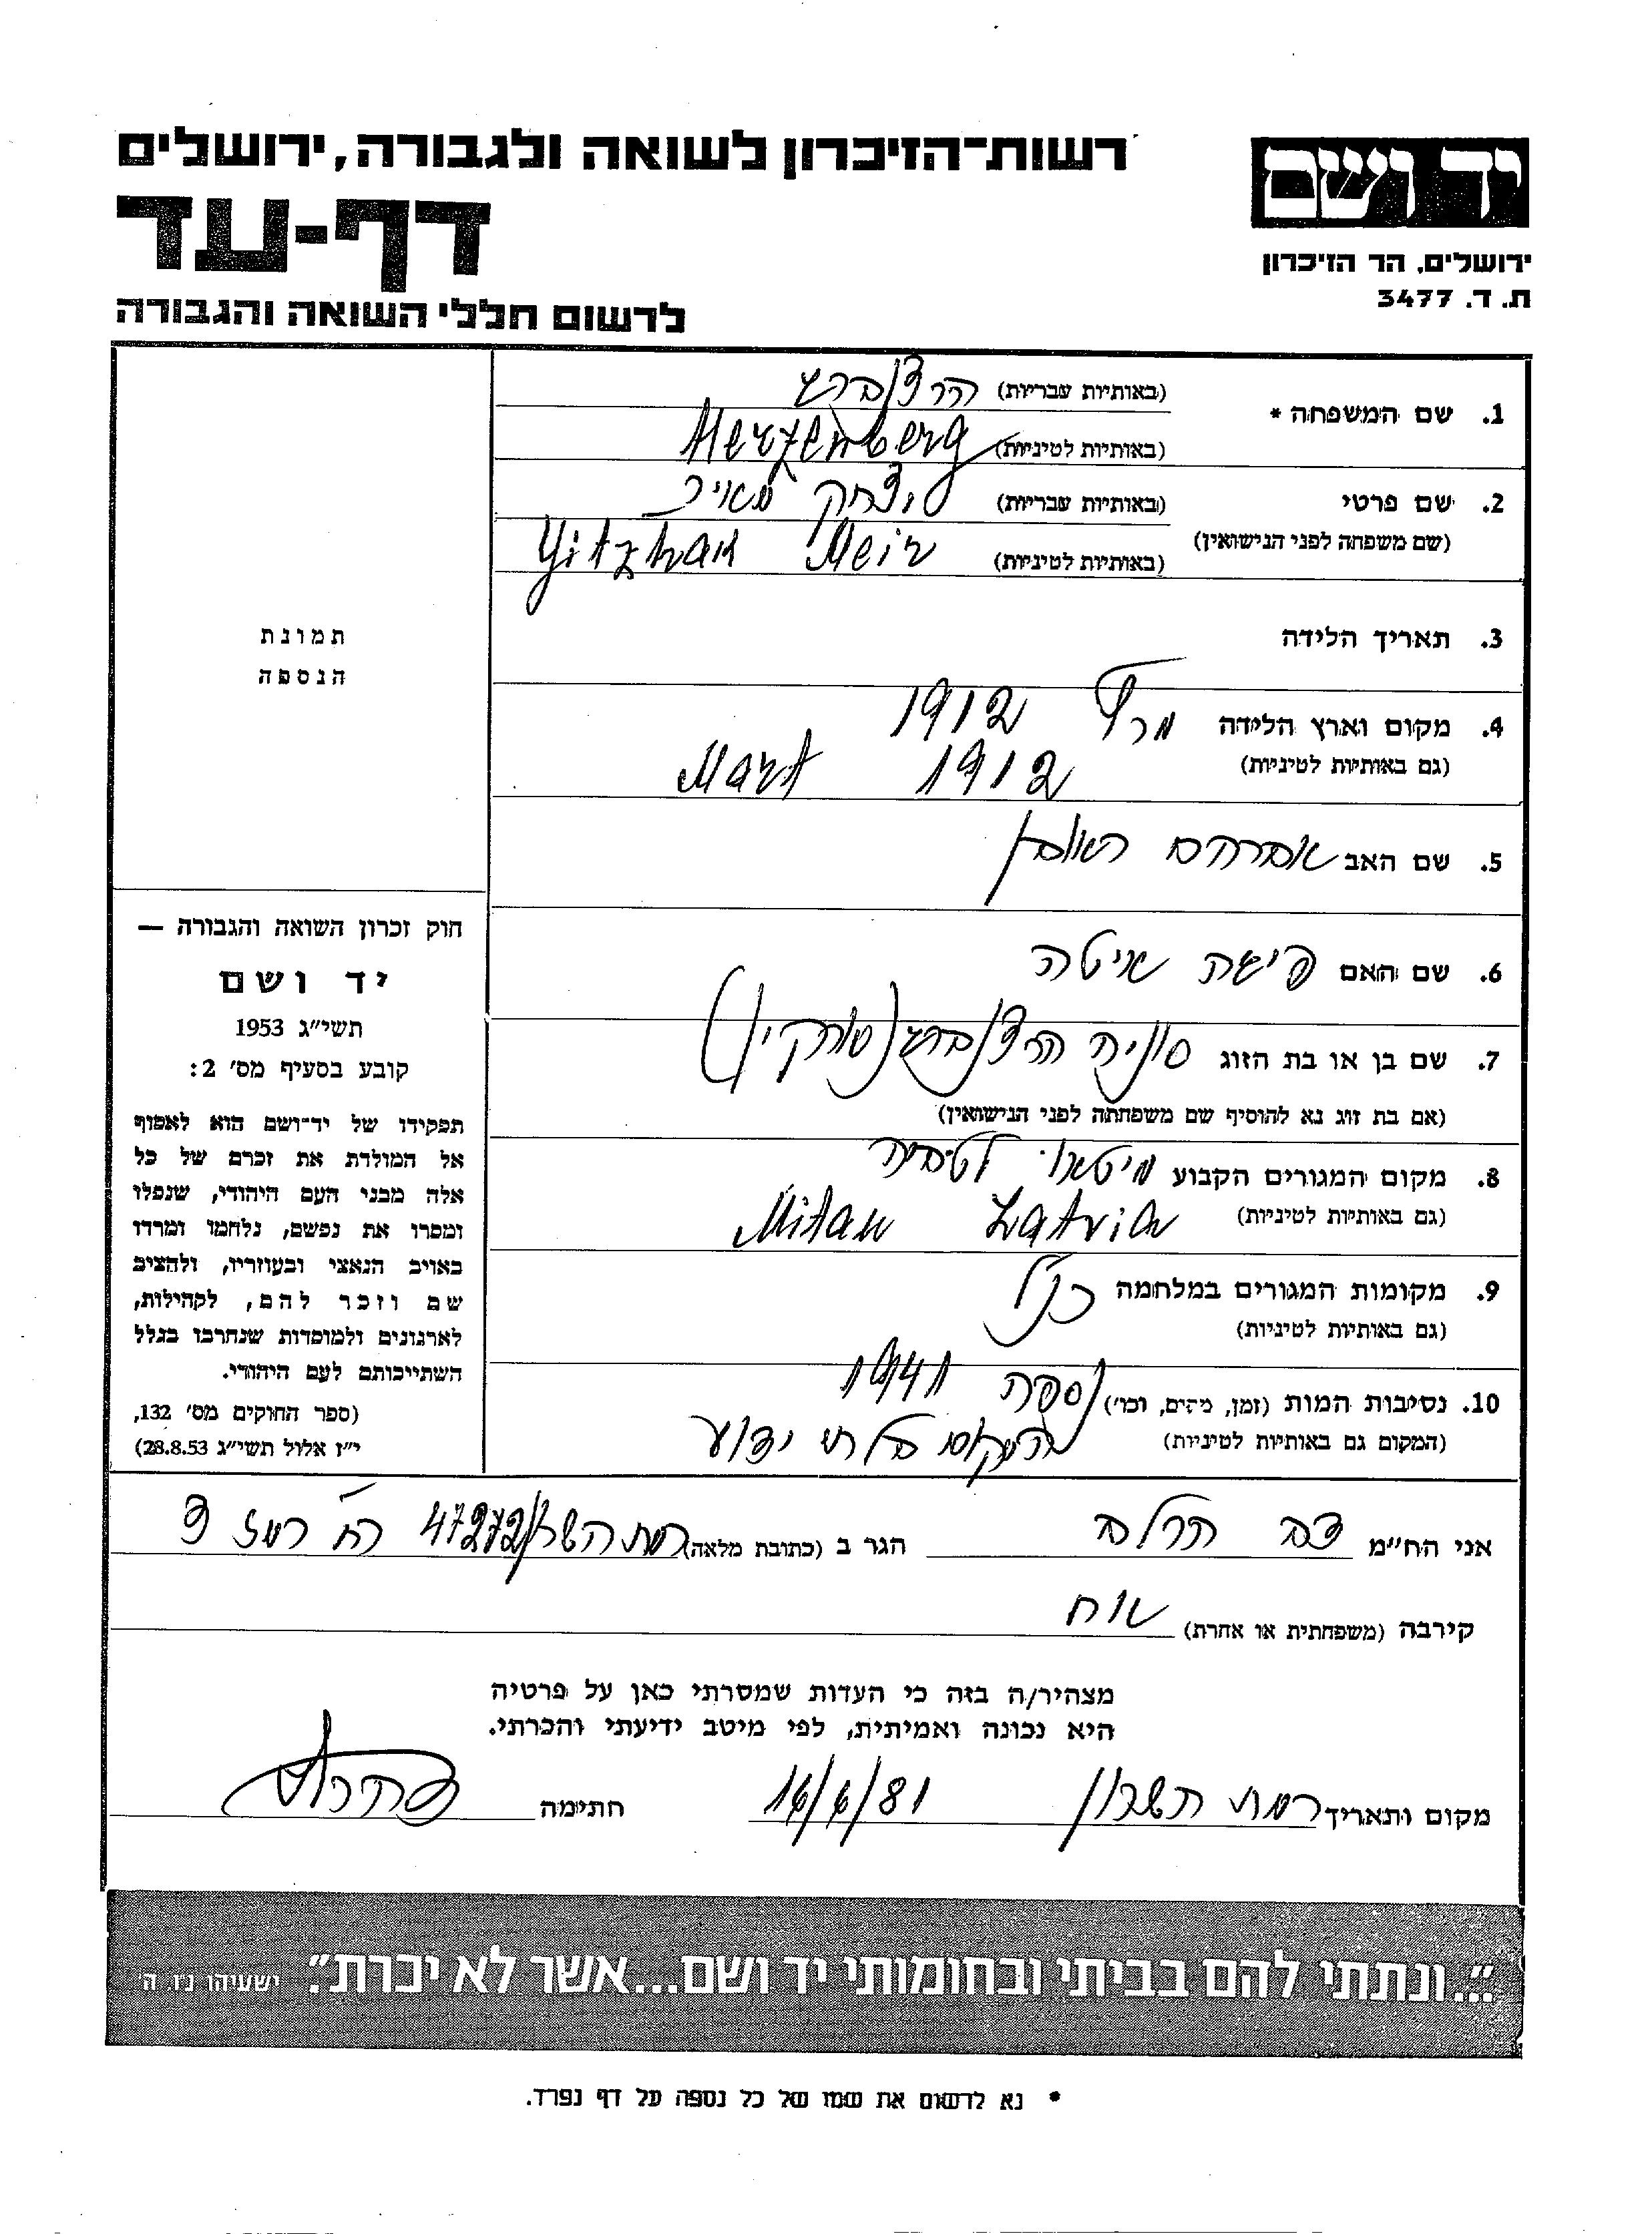 רשות-הזיכרון לשואה ולגבורה, ירושלים
יד ושם
דף-עד
ירושלים, הר הזיכרון
ת. ד. 3477
לרשום חללי השואה והגבורה
1. שם המשפחה * (באותיות עבריות) הרצנברג
(באותיות לטיניות) Herzenberg
2. שם פרטי (באותיות עבריות) יצחק מאיר
(שם משפחה לפני הנישואין) (באותיות לטיניות) Yitzhak Meir
תמונת
הנספה
3. תאריך הלידה
4. מקום וארץ הלידה 1912
(גם באותיות לטיניות) Mart 1912
5. שם האב אברהם ראובן
6. שם האם איטה
7. שם בן או בת הזוג סוניה הרצנברג
(אם בת זוג נא להוסיף שם משפחתה לפני הנישואין)
8. מקום המגורים הקבוע מיטאו לטביה
(גם באותיות לטיניות) Mitau Latvia
9. מקומות המגורים במלחמה כנ"ל
(גם באותיות לטיניות)
10. נסיבות המות (זמן, מקום, וכו') נספה 1941
(המקום גם באותיות לטיניות) המקום בלתי ידוע
חוק זכרון השואה והגבורה —
יד ושם
תשי״ג 1953
קובע בסעיף מס׳ 2:
תפקידו של יד־ושם הוא לאסוף
אל המולדת את זכרם של כל
אלה מבני העם היהודי, שנפלו
ומסרו את נפשם, נלחמו ומרדו
באויב הנאצי ובעוזריו, ולהציב
שם וזכר להם, לקהילות,
לארגונים ולמוסדות שנחרבו בגלל
השתייכותם לעם היהודי.
(ספר החוקים מס׳ 132,
י״ז אלול תשי״ג 28.8.53)
אני הח״מ הגר ב (כתובת מלאה) רמת השרון 47272 רח'
קירבה (משפחתית או אחרת) אח
מצהיר/ה בזה כי העדות שמסרתי כאן על פרטיה
היא נכונה ואמיתית, לפי מיטב ידיעתי והכרתי.
מקום ותאריך רמת השרון 16/6/81 חתימה
״...ונתתי להם בביתי ובחומותי יד ושם...אשר לא יכרת״. ישעיהו נו, ה׳
* נא לרשום את שמו של כל נספה על דף נפרד.